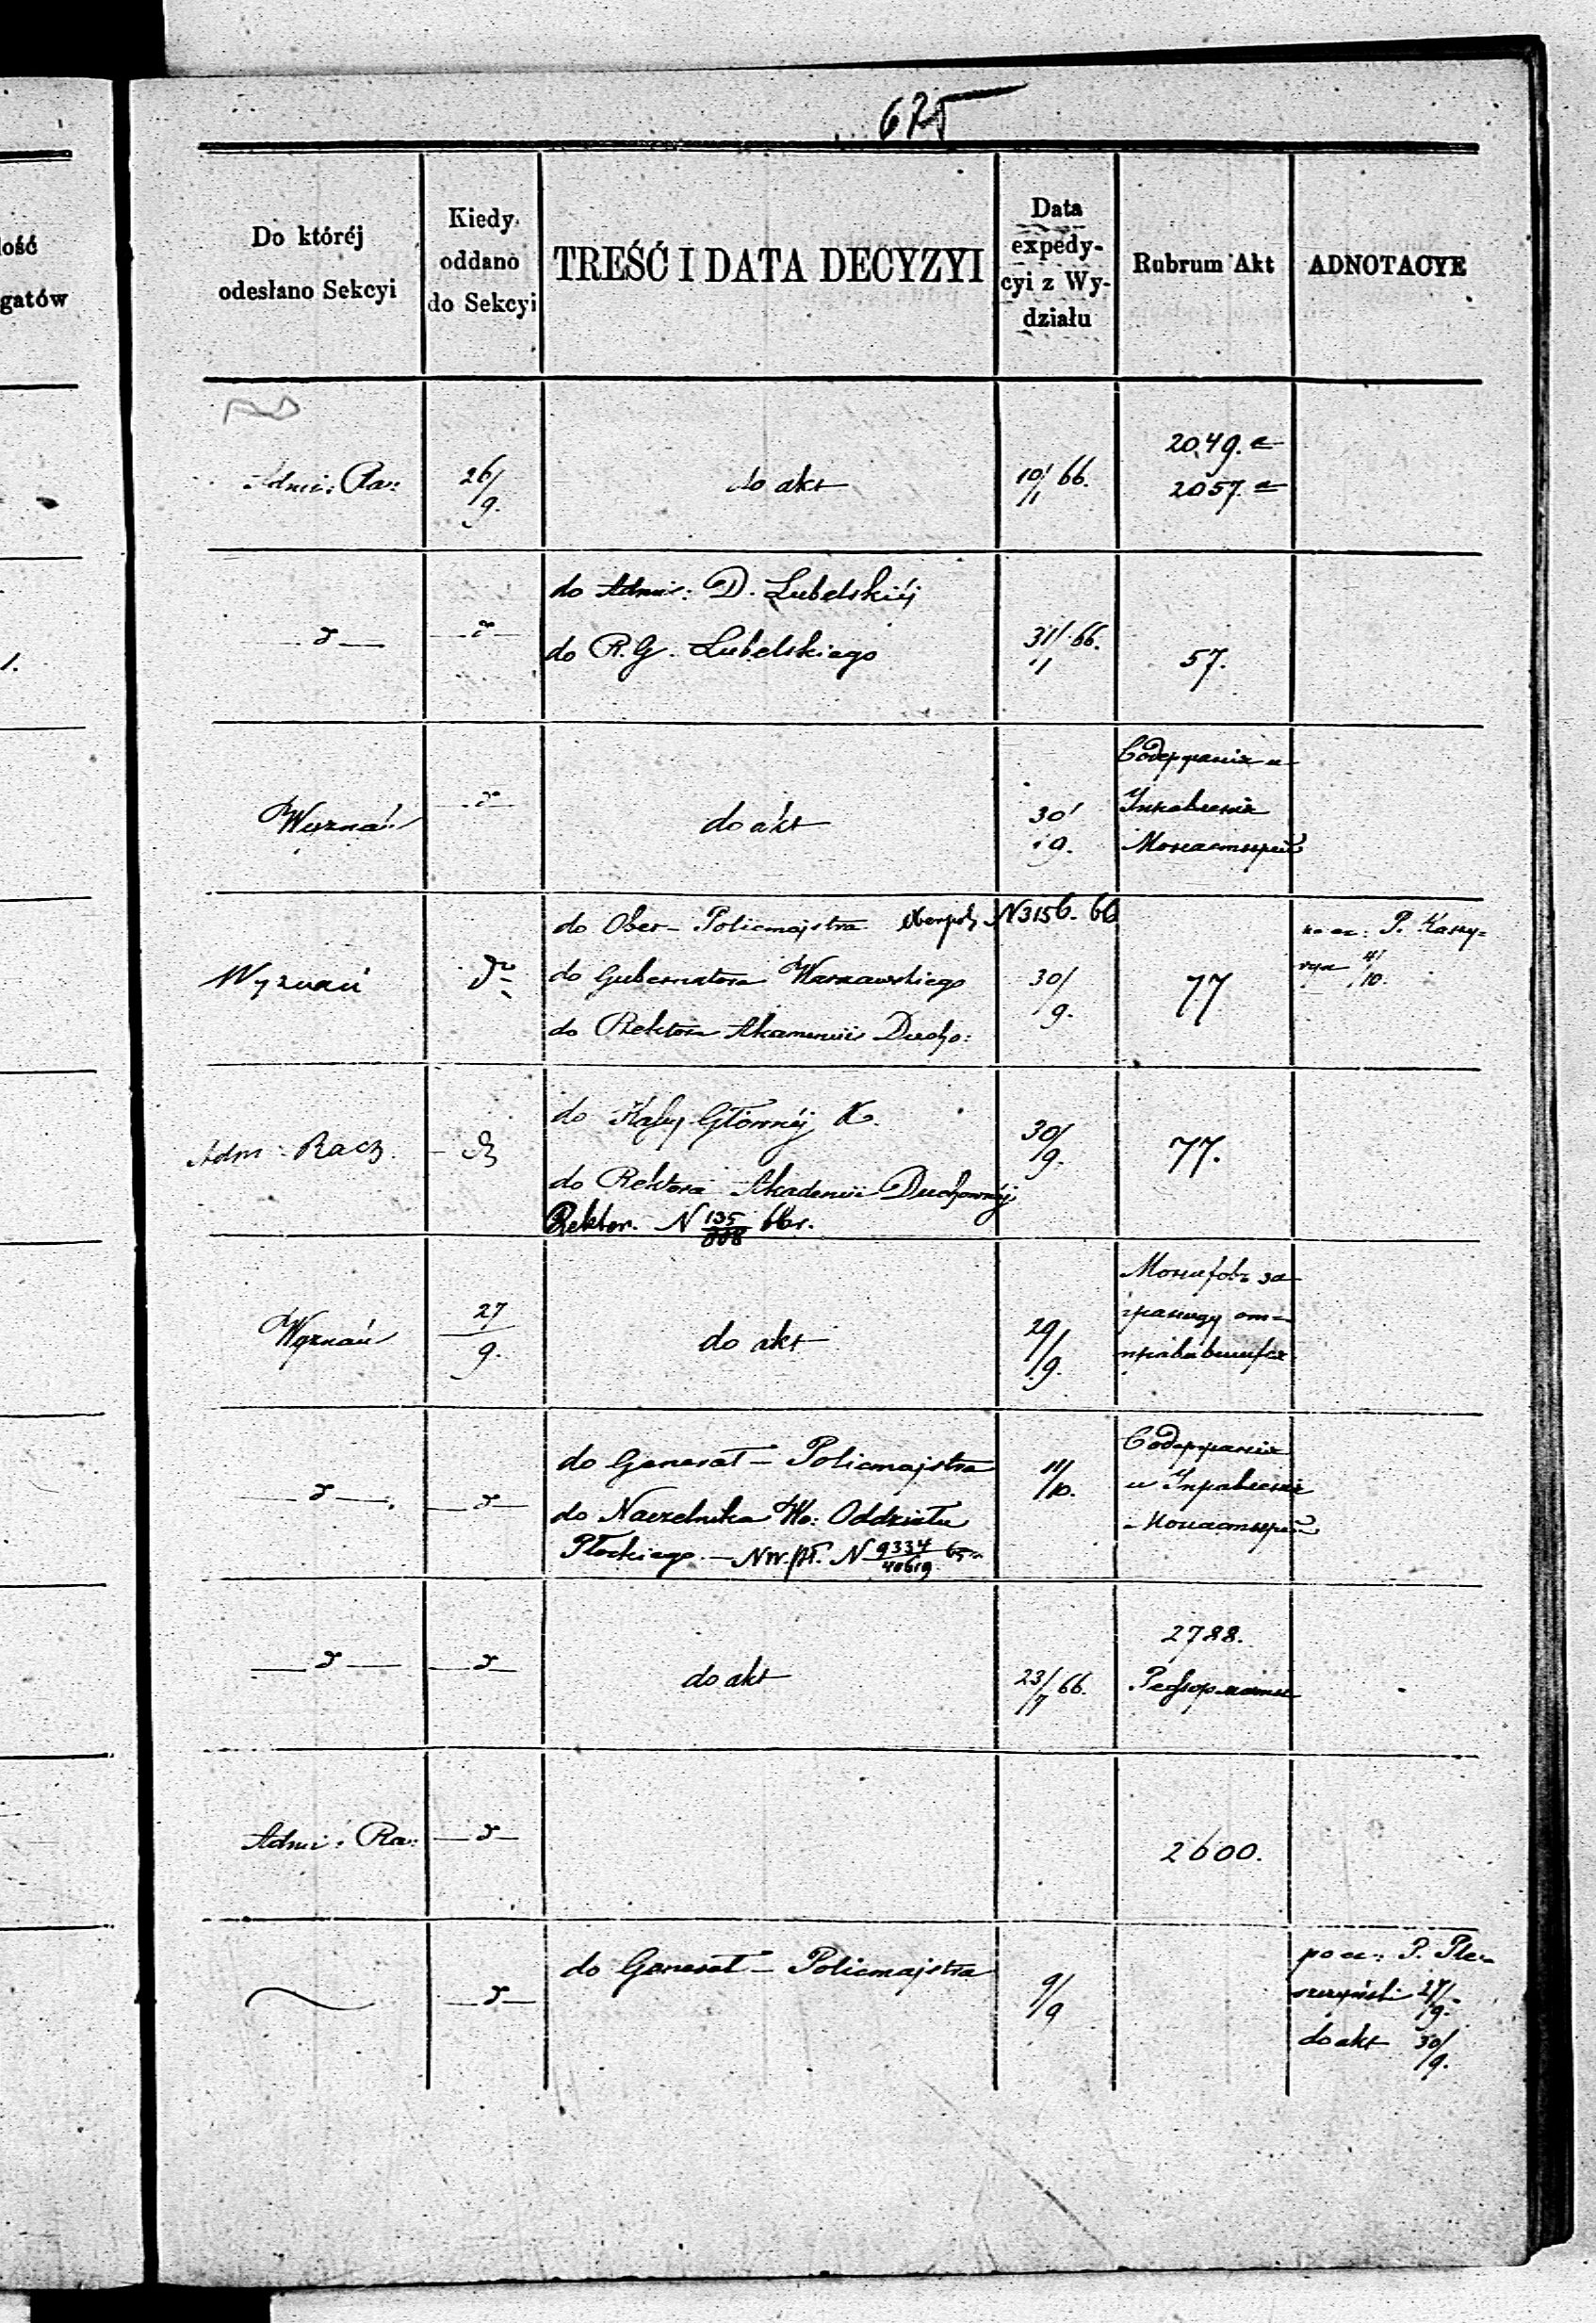 675
ość
gatów
Do któréj
odesłano Sekcyi
Kiedy
oddano
do Sekcyi
TREŚĆ I DATA DECYZYI
Data
expedy-
cyi z Wy-
działu
Rubrum Akt
ADNOTACYE
Admi: Ra:
26/9.
do akt
10/1 66.
2049.
2057.
1.
do Admi: D. Lubelskiéj
do R. G. Lubelskiego
31/1 66.
57.
Wyznań
do akt
30/9.
Содержанія и
Управленія
Монастырей
Wyznań
do
do Ober-Policmajstra Oberpol. N 3156. 66
do Gubernatora Warszawskiego
do Rektora Akademii Ducho:
30/9.
77
4/10.
Adm: Racz.
do Kasy Głównéj K.
do Rektora Akademii Duchownéj
Rektor. N 135/ 66 r.
30/9.
77.
Wyznań
27/9.
do akt
29/9.
за
границу от-
do Generał-Policmajstra
do Naczelnika Wo: Oddziału
Płockiego. — N 9334/40619
11/10.
Содержанія
и Управленія
Монастырей
do akt
23/7 66.
2788.
Admi: Ra:
2600.
do Generał-Policmajstra
9/9
27/9.
do akt 30/9.